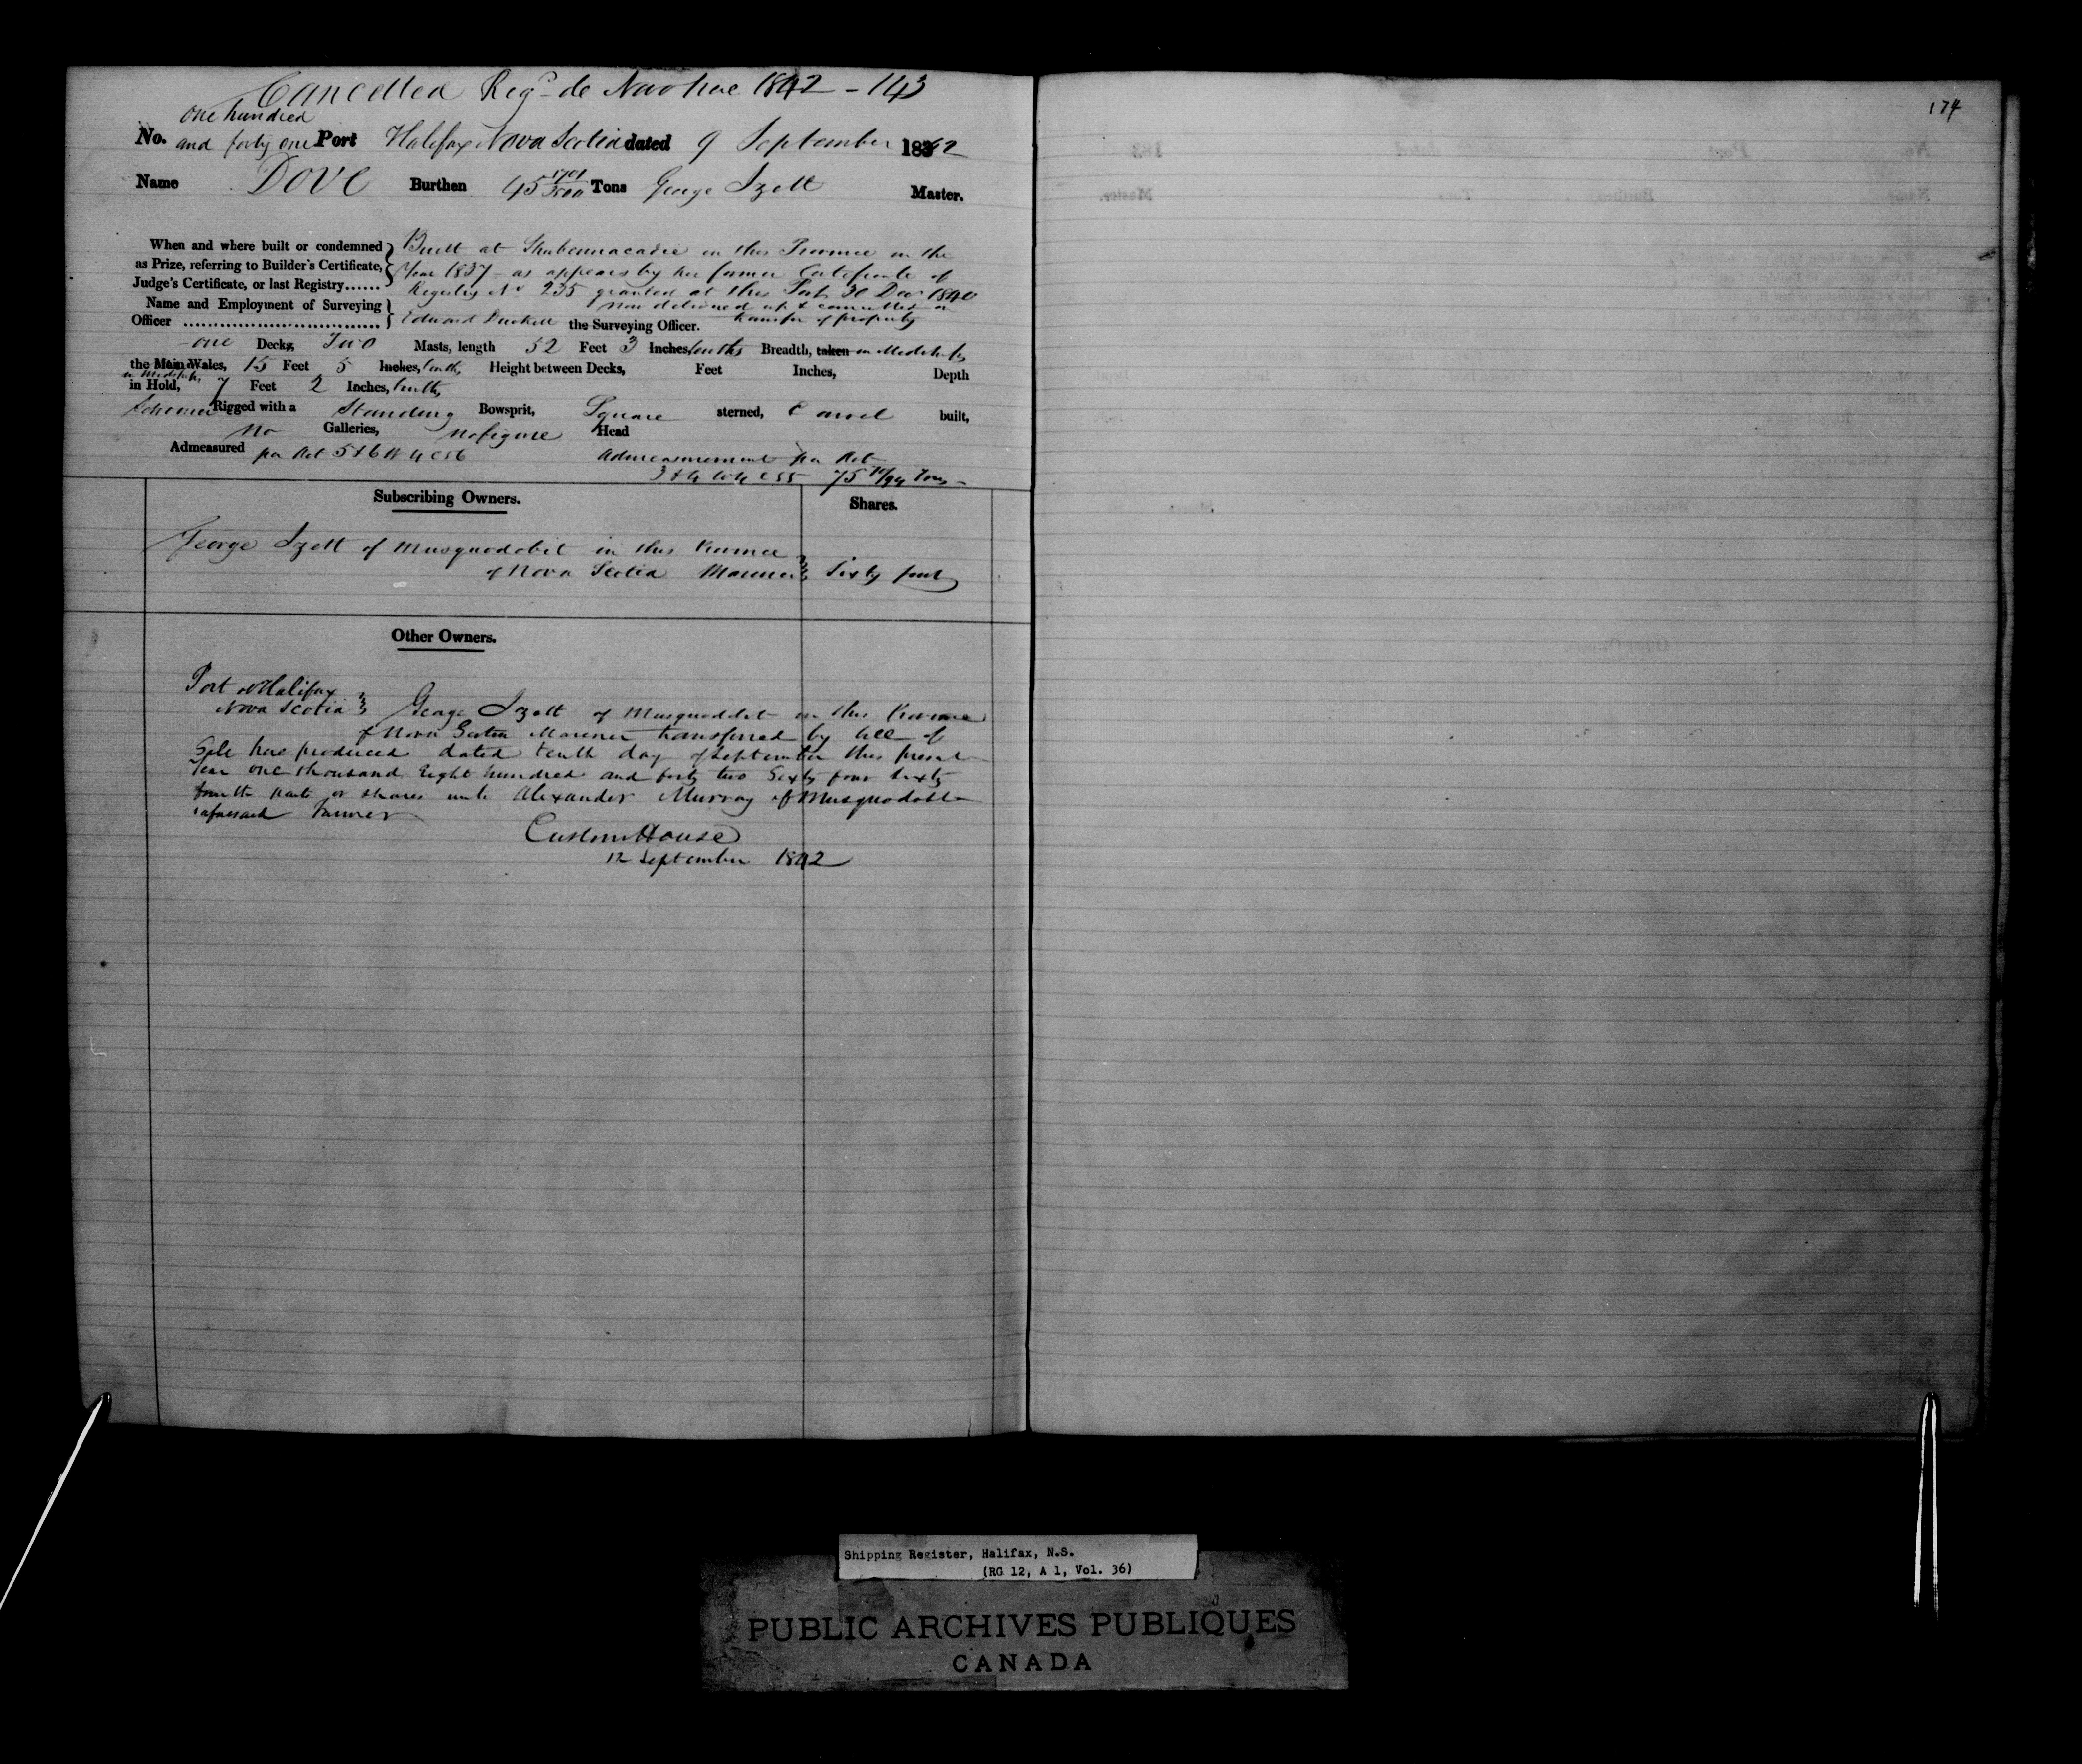 Cancelled Regd de Novo here 1842 - 143
174
one hundred
No. and forty one Port Halifax Nova Scotia dated 9 September 1842
Name Dove Burthen 45 1701/3500 Tons George Izett Master.
When and where built or condemned as Prize, referring to Builder's Certificate, Judge's Certificate, or last Registry......
Built at Shubenacadie in this Province in the
Year 1837 as appears by her former Certificate of
Registry No 235 granted at this Port 30 Decr 1840
now delivered up & cancelled on
transfer of property
Name and Employment of Surveying Officer ................................ Edward Duckett the Surveying Officer.
one Decks, Two Masts, length 52 Feet 3 Inches, tenths Breadth, taken in Midships
the Main Wales, 15 Feet 5 Inches, tenths, Height between Decks, Feet Inches, Depth
in Midships
in Hold, 7 Feet 2 Inches, tenths,
Schooner Rigged with a Standing Bowsprit, Square sterned, Carvel built,
No Galleries, No figure Head
Admeasured per Act 5 & 6 W 4 C 56 Admeasurement per Act
3 & 4 W 4 C 55 75 /94 Tons
Subscribing Owners. Shares.
George Izett of Musquodobit in this Province
of Nova Scotia Mariner Sixty four
Other Owners.
Port of Halifax
Nova Scotia George Izett of Musquodobit in this Province
of Nova Scotia Mariner transferred by Bill of
Sale here produced dated tenth day of September this present
Year one thousand Eight hundred and forty two Sixty four Sixty
fourth parts or shares unto Alexander Murray of Musquodobit
aforesaid Farmer
Custom House
12 September 1842
Shipping Register, Halifax, N.S.
(RG 12, A 1, Vol. 36)
PUBLIC ARCHIVES PUBLIQUES
CANADA